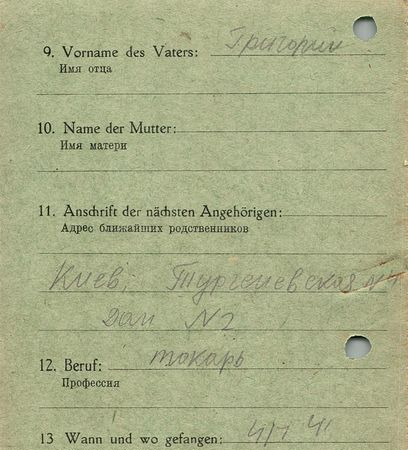 9. Vorname des Vaters: Григорий
Имя отца
10. Name der Mutter:
Имя матери
11. Anschrift der nächsten Angehörigen:
Адрес ближайших родственников
Киев, Тургеневская
Дом N2
12. Beruf: токарь
Профессия
13 Wann und wo gefangen: